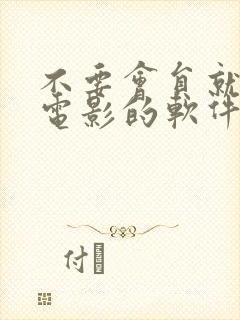 不要會員就
電影的軟件
付